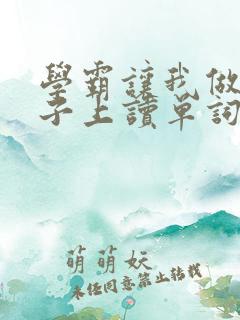 學霸讓我做
子上讀單詞
萌萌妖
未经同意禁止转载